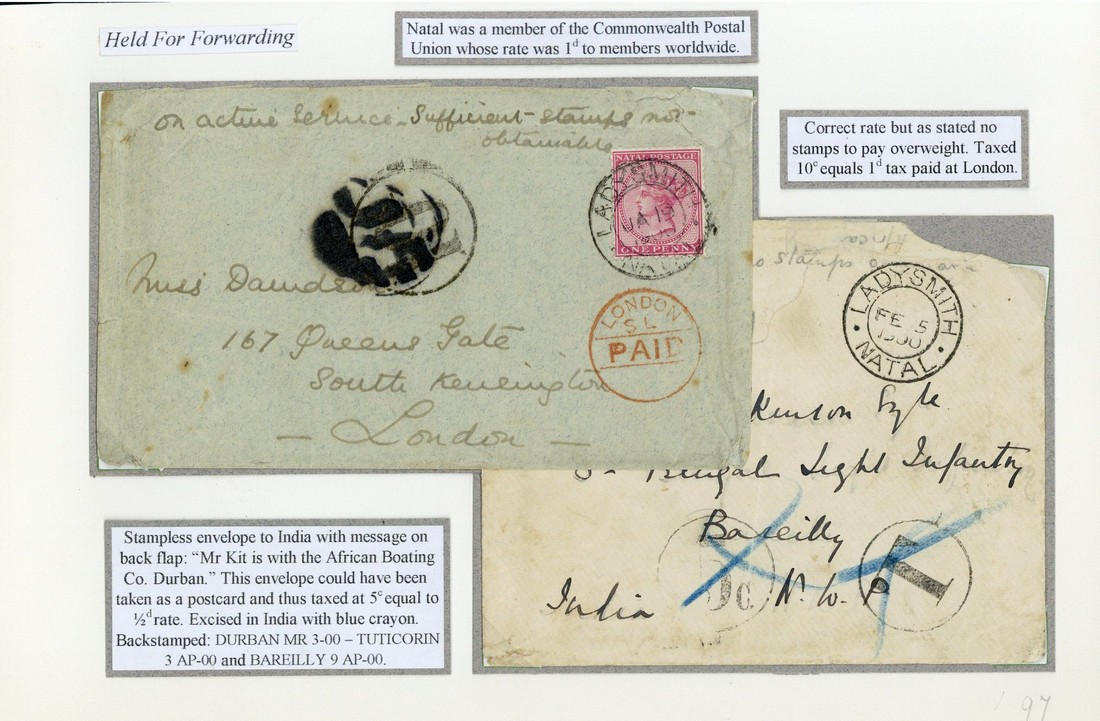 Held For Forwarding
Natal was a member of the Commonwealth Postal
Union whose rate was 1d to members worldwide.
on active service - Sufficient stamps not
obtainable
NATAL POSTAGE
ONE PENNY
LADYSMITH
JA 13
NATAL
Correct rate but as stated no
stamps to pay overweight. Taxed
10c equals 1d tax paid at London.
Miss
167 Queens Gate
South Kensington
— London —
LONDON
S L
PAID
Africa
stamps
LADYSMITH
FE 5
1900
NATAL
Bengal Light Infantry
Bareilly
India N.W.P
c.
T
Stampless envelope to India with message on
back flap: “Mr Kit is with the African Boating
Co. Durban.” This envelope could have been
taken as a postcard and thus taxed at 5c equal to
½d rate. Excised in India with blue crayon.
Backstamped: DURBAN MR 3-00 – TUTICORIN
3 AP-00 and BAREILLY 9 AP-00.
97